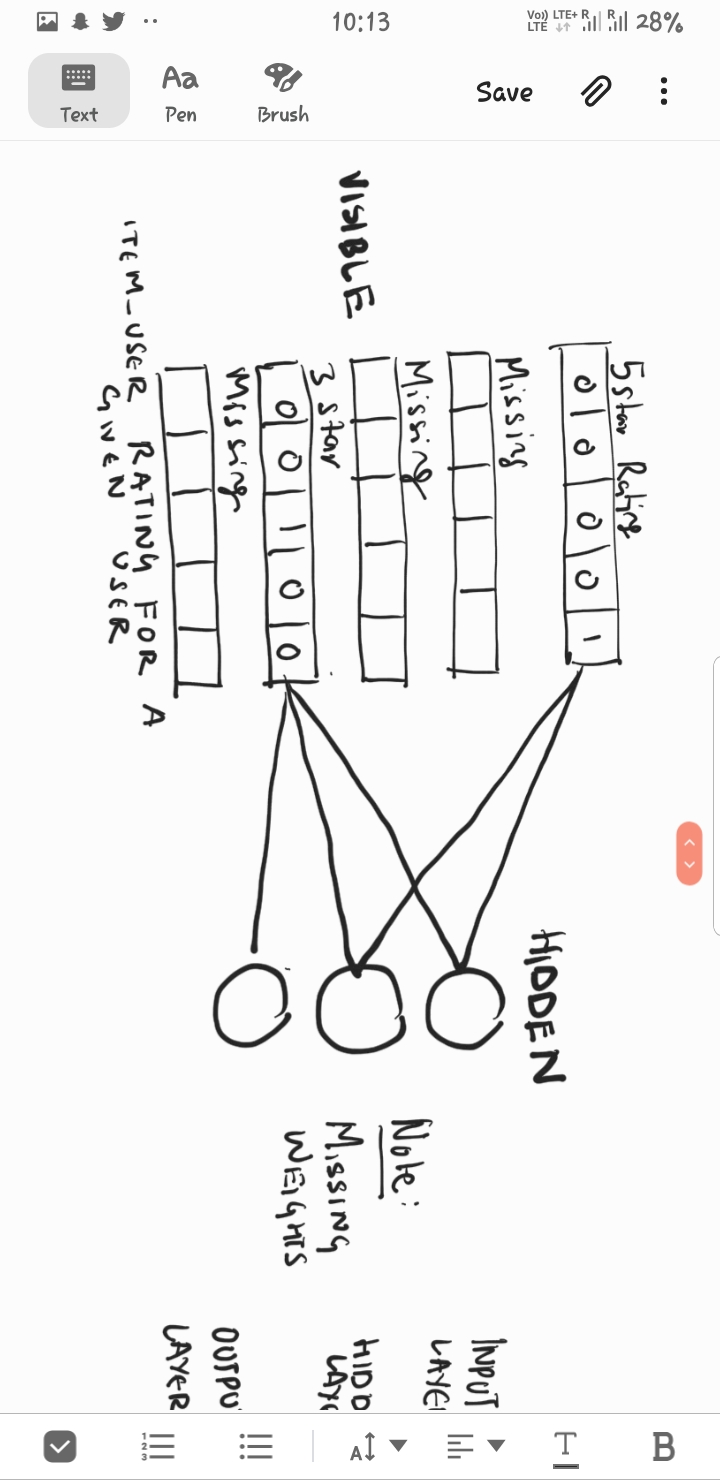 10:13
Vo)) LTE+ R R 28%
LTE
Text
Aa
Pen
Brush
Save
VISIBLE
5 star Rating
0 0 0 0 1
Missing
Missing
3 star
0 0 1 0 0
Missing
ITEM-USER RATING FOR A
GIVEN USER
HIDDEN
Note:
MISSING
WEIGHTS
INPUT
LAYE
HIDD
LAY
OUTPU
LAYER
1
2
3
A
T
B